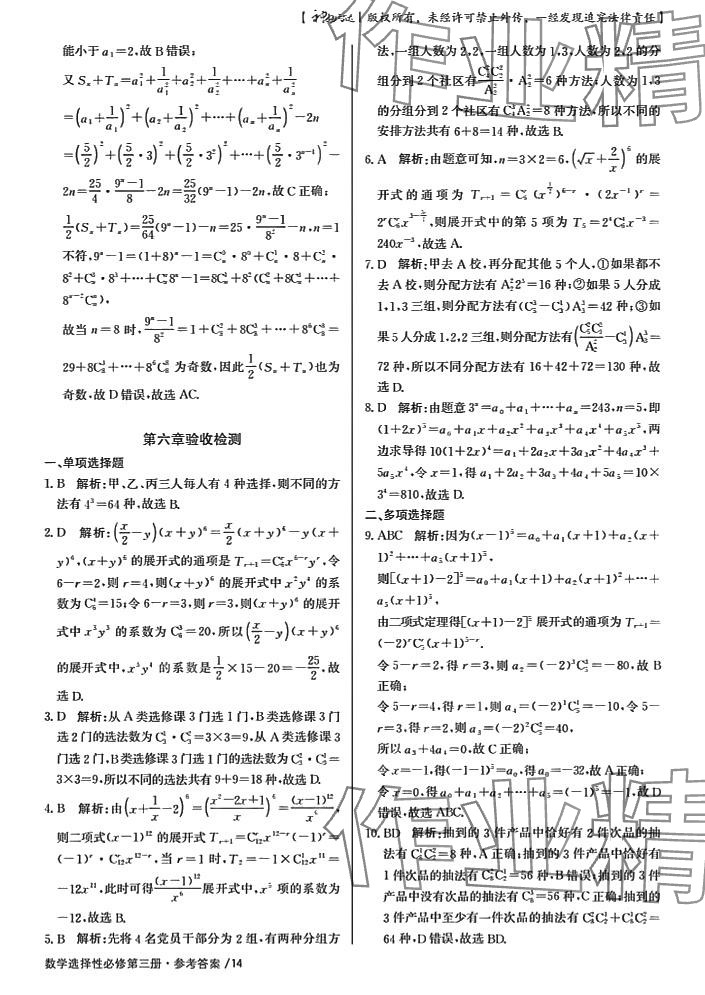 版权所有，未经许可禁止外传，一经发现追究法律责任】
能小于 a₁=2,故 B 错误;
又 Sₙ+Tₙ=a₁²+1/a₁²+a₂²+1/a₂²+…+aₙ²+1/aₙ²
=(a₁+1/a₁)²+(a₂+1/a₂)²+…+(aₙ+1/aₙ)²-2n
=(5/2)²+(5/2·3)²+(5/2·3²)²+…+(5/2·3ⁿ⁻¹)²-
2n=25/4·(9ⁿ-1)/8-2n=25/32(9ⁿ-1)-2n,故 C 正确;
1/2(Sₙ+Tₙ)=25/64(9ⁿ-1)-n=25·(9ⁿ-1)/8²-n,n=1
不符,9ⁿ-1=(1+8)ⁿ-1=Cₙ⁰·8⁰+Cₙ¹·8+Cₙ²·
8²+Cₙ³·8³+…+Cₙⁿ8ⁿ-1=8Cₙ¹+8²(Cₙ²+8Cₙ³+…+
8ⁿ⁻²Cₙⁿ),
故当 n=8 时,(9ⁿ-1)/8²=1+C₈²+8C₈³+…+8⁶C₈⁸=
29+8C₈³+…+8⁶C₈⁸ 为奇数,因此1/2(Sₙ+Tₙ)也为
奇数,故 D 错误,故选 AC.
第六章验收检测
一、单项选择题
1. B 解析:甲、乙、丙三人每人有 4 种选择,则不同的方
法有 4³=64 种,故选 B.
2. D 解析:(x/2-y)(x+y)⁶=x/2(x+y)⁶-y(x+
y)⁶,(x+y)⁶ 的展开式的通项是 Tᵣ₊₁=C₆ʳx⁶⁻ʳyʳ,令
6-r=2,则 r=4,则(x+y)⁶ 的展开式中 x²y⁴ 的系
数为 C₆⁴=15;令 6-r=3,则 r=3,则(x+y)⁶ 的展开
式中 x³y³ 的系数为 C₆³=20,所以(x/2-y)(x+y)⁶
的展开式中,x³y⁴ 的系数是1/2×15-20=-25/2,故
选 D.
3. D 解析:从 A 类选修课 3 门选 1 门,B 类选修课 3 门
选 2 门的选法数为 C₃¹·C₃²=3×3=9,从 A 类选修课 3
门选 2 门,B 类选修课 3 门选 1 门的选法数为 C₃²·C₃¹=
3×3=9,所以不同的选法共有 9+9=18 种,故选 D.
4. B 解析:由(x+1/x-2)⁶=((x²-2x+1)/x)⁶=(x-1)¹²/x⁶,
则二项式(x-1)¹² 的展开式 Tᵣ₊₁=C₁₂ʳx¹²⁻ʳ(-1)ʳ=
(-1)ʳ·C₁₂ʳx¹²⁻ʳ,当 r=1 时,T₂=-1×C₁₂¹x¹¹=
-12x¹¹,此时可得(x-1)¹²/x⁶展开式中,x⁵ 项的系数为
-12,故选 B.
5. B 解析:先将 4 名党员干部分为 2 组,有两种分组方
法,一组人数为 2,2,一组人数为 1,3,人数为 2,2 的分
组分到 2 个社区有C₄²C₂²/A₂²·A₂²=6 种方法;人数为 1,3
的分组分到 2 个社区有 C₄¹A₂²=8 种方法,所以不同的
安排方法共有 6+8=14 种,故选 B.
6. A 解析:由题意可知,n=3×2=6,(√x+2/x)⁶ 的展
开式的通项为 Tᵣ₊₁=C₆ʳ(x^(1/2))⁶⁻ʳ·(2x⁻¹)ʳ=
2ʳC₆ʳx^(3-3r/2),则展开式中的第 5 项为 T₅=2⁴C₆⁴x⁻³=
240x⁻³,故选 A.
7. D 解析:甲去 A 校,再分配其他 5 个人,①如果都不
去 A 校,则分配方法有 A₂²2³=16 种;②如果 5 人分成
1,1,3 三组,则分配方法有(C₅³-C₄³)A₃³=42 种;③如
果 5 人分成 1,2,2 三组,则分配方法有(C₅²C₃²/A₂²-C₃¹)A₃³=
72 种,所以不同分配方法有 16+42+72=130 种,故
选 D.
8. D 解析:由题意 3ⁿ=a₀+a₁+…+aₙ=243,n=5,即
(1+2x)⁵=a₀+a₁x+a₂x²+a₃x³+a₄x⁴+a₅x⁵,两
边求导得 10(1+2x)⁴=a₁+2a₂x+3a₃x²+4a₄x³+
5a₅x⁴,令 x=1,得 a₁+2a₂+3a₃+4a₄+5a₅=10×
3⁴=810,故选 D.
二、多项选择题
9. ABC 解析:因为(x-1)⁵=a₀+a₁(x+1)+a₂(x+
1)²+…+a₅(x+1)⁵,
则[(x+1)-2]⁵=a₀+a₁(x+1)+a₂(x+1)²+…+
a₅(x+1)⁵,
由二项式定理得[(x+1)-2]⁵ 展开式的通项为 Tᵣ₊₁=
(-2)ʳC₅ʳ(x+1)⁵⁻ʳ.
令 5-r=2,得 r=3,则 a₂=(-2)³C₅³=-80,故 B
正确;
令 5-r=4,得 r=1,则 a₄=(-2)¹C₅¹=-10,令 5-
r=3,得 r=2,则 a₃=(-2)²C₅²=40,
所以 a₃+4a₄=0,故 C 正确;
令 x=-1,得(-1-1)⁵=a₀,得 a₀=-32,故 A 正确;
令 x=0,得 a₀+a₁+a₂+…+a₅=(-1)⁵=-1,故 D
错误,故选 ABC.
10. BD 解析:抽到的 3 件产品中恰好有 2 件次品的抽
法有 C₈¹C₂²=8 种,A 正确;抽到的 3 件产品中恰好有
1 件次品的抽法有 C₈²C₂¹=56 种,B 错误;抽到的 3 件
产品中没有次品的抽法有 C₈³=56 种,C 正确;抽到的
3 件产品中至少有一件次品的抽法有 C₈¹C₂²+C₈²C₂¹=
64 种,D 错误,故选 BD.
数学选择性必修第三册·参考答案/14
作业精
作业精